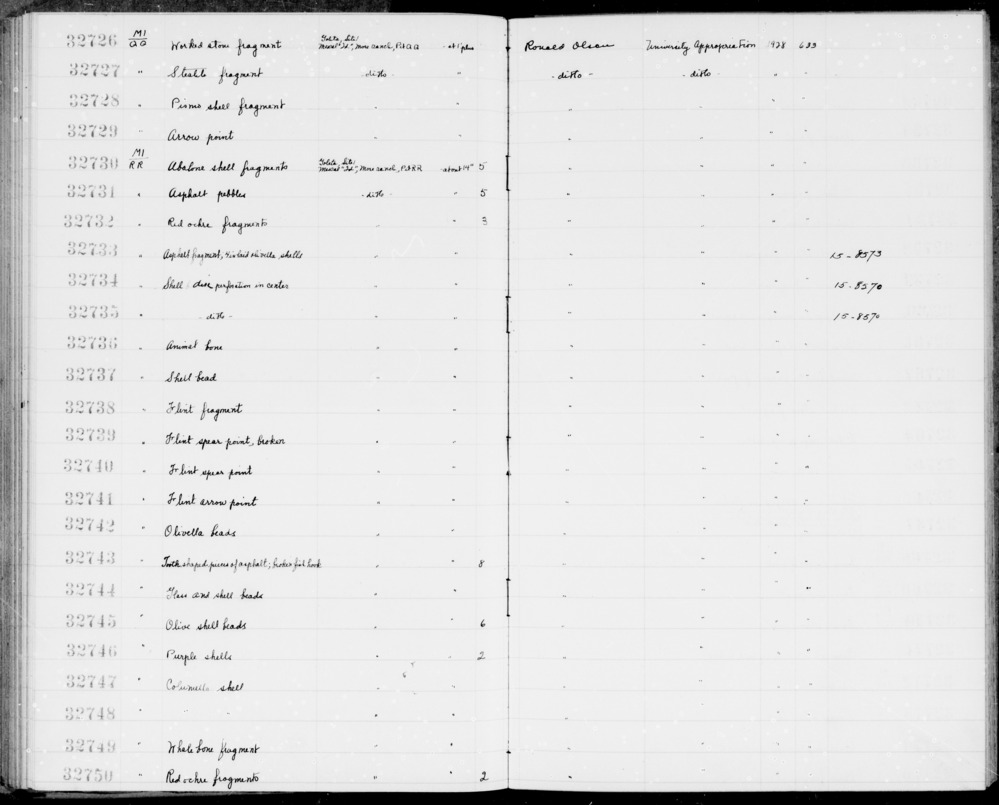 32726 MI QQ Worked stone fragment Goleta, Site: Mescal "Id", More ranch, Pit QQ at 1' plus Ronald Olson University Appropriation 1928 633
32727 " Steatite fragment - ditto - " - ditto - - ditto - " "
32728 " Pismo shell fragment " " " " " "
32729 " Arrow point " " " " " "
32730 MI RR Abalone shell fragments Goleta, Site: Mescal "Id", More ranch, Pit RR about 14" 5 " " " "
32731 " Asphalt pebbles - ditto - " 5 " " " "
32732 " Red ochre fragments " " 3 " " " "
32733 " Asphalt fragment, olivella shells " " " " " " 15-8573
32734 " Shell disc, perforation in center " " " " " " 15-8570
32735 " - ditto - " " " " " " 15-8570
32736 " Animal bone " " " " " "
32737 " Shell bead " " " " " "
32738 " Flint fragment " " " " " "
32739 " Flint spear point, broken " " " " " "
32740 " Flint spear point " " " " " "
32741 " Flint arrow point " " " " " "
32742 " Olivella beads " " " " " "
32743 " Tooth shaped pieces of asphalt; broken fish hook " " 8 " " " "
32744 " Glass and shell beads " " " " " "
32745 " Olive shell beads " " 6 " " " "
32746 " Purple shells " " 2 " " " "
32747 " Columella shell " " " " " "
32748 " " " " " " " " "
32749 " Whale bone fragment " " " " " "
32750 " Red ochre fragments " " 2 " " " "